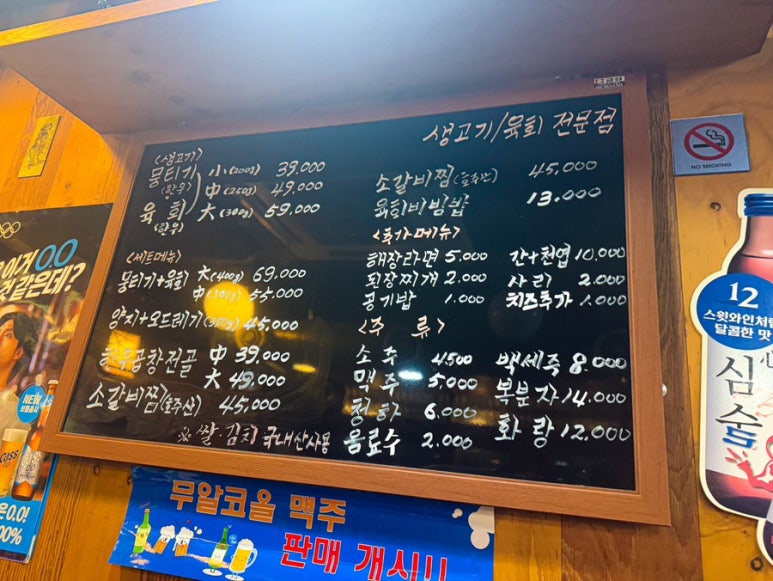 생고기/육회 전문점
<생고기>
뭉티기 小(200g) 39,000
(한우) 中(250g) 49,000
육회 大(300g) 59,000
(한우)
<세트메뉴>
뭉티기+육회 大(400g) 69,000
中(300g) 55,000
양지+오드레기(350g) 45,000
한우곱창전골 中 39,000
大 49,000
소갈비찜(호주산) 45,000
※ 쌀·김치 국내산사용
소갈비찜(호주산) 45,000
육회비빔밥 13,000
<추가메뉴>
해장라면 5,000 간+천엽 10,000
된장찌개 2,000 사리 2,000
공기밥 1,000 치즈추가 1,000
<주 류>
소주 4,500 백세주 8,000
맥주 5,000 복분자 14,000
청하 6,000 화랑 12,000
음료수 2,000
NO SMOKING
이거 0.0
것 같은데?
NEW
은 0.0!
100%
무알코올 맥주
판매 개시!!
12
스윗와인처럼
달콤한 맛
심술